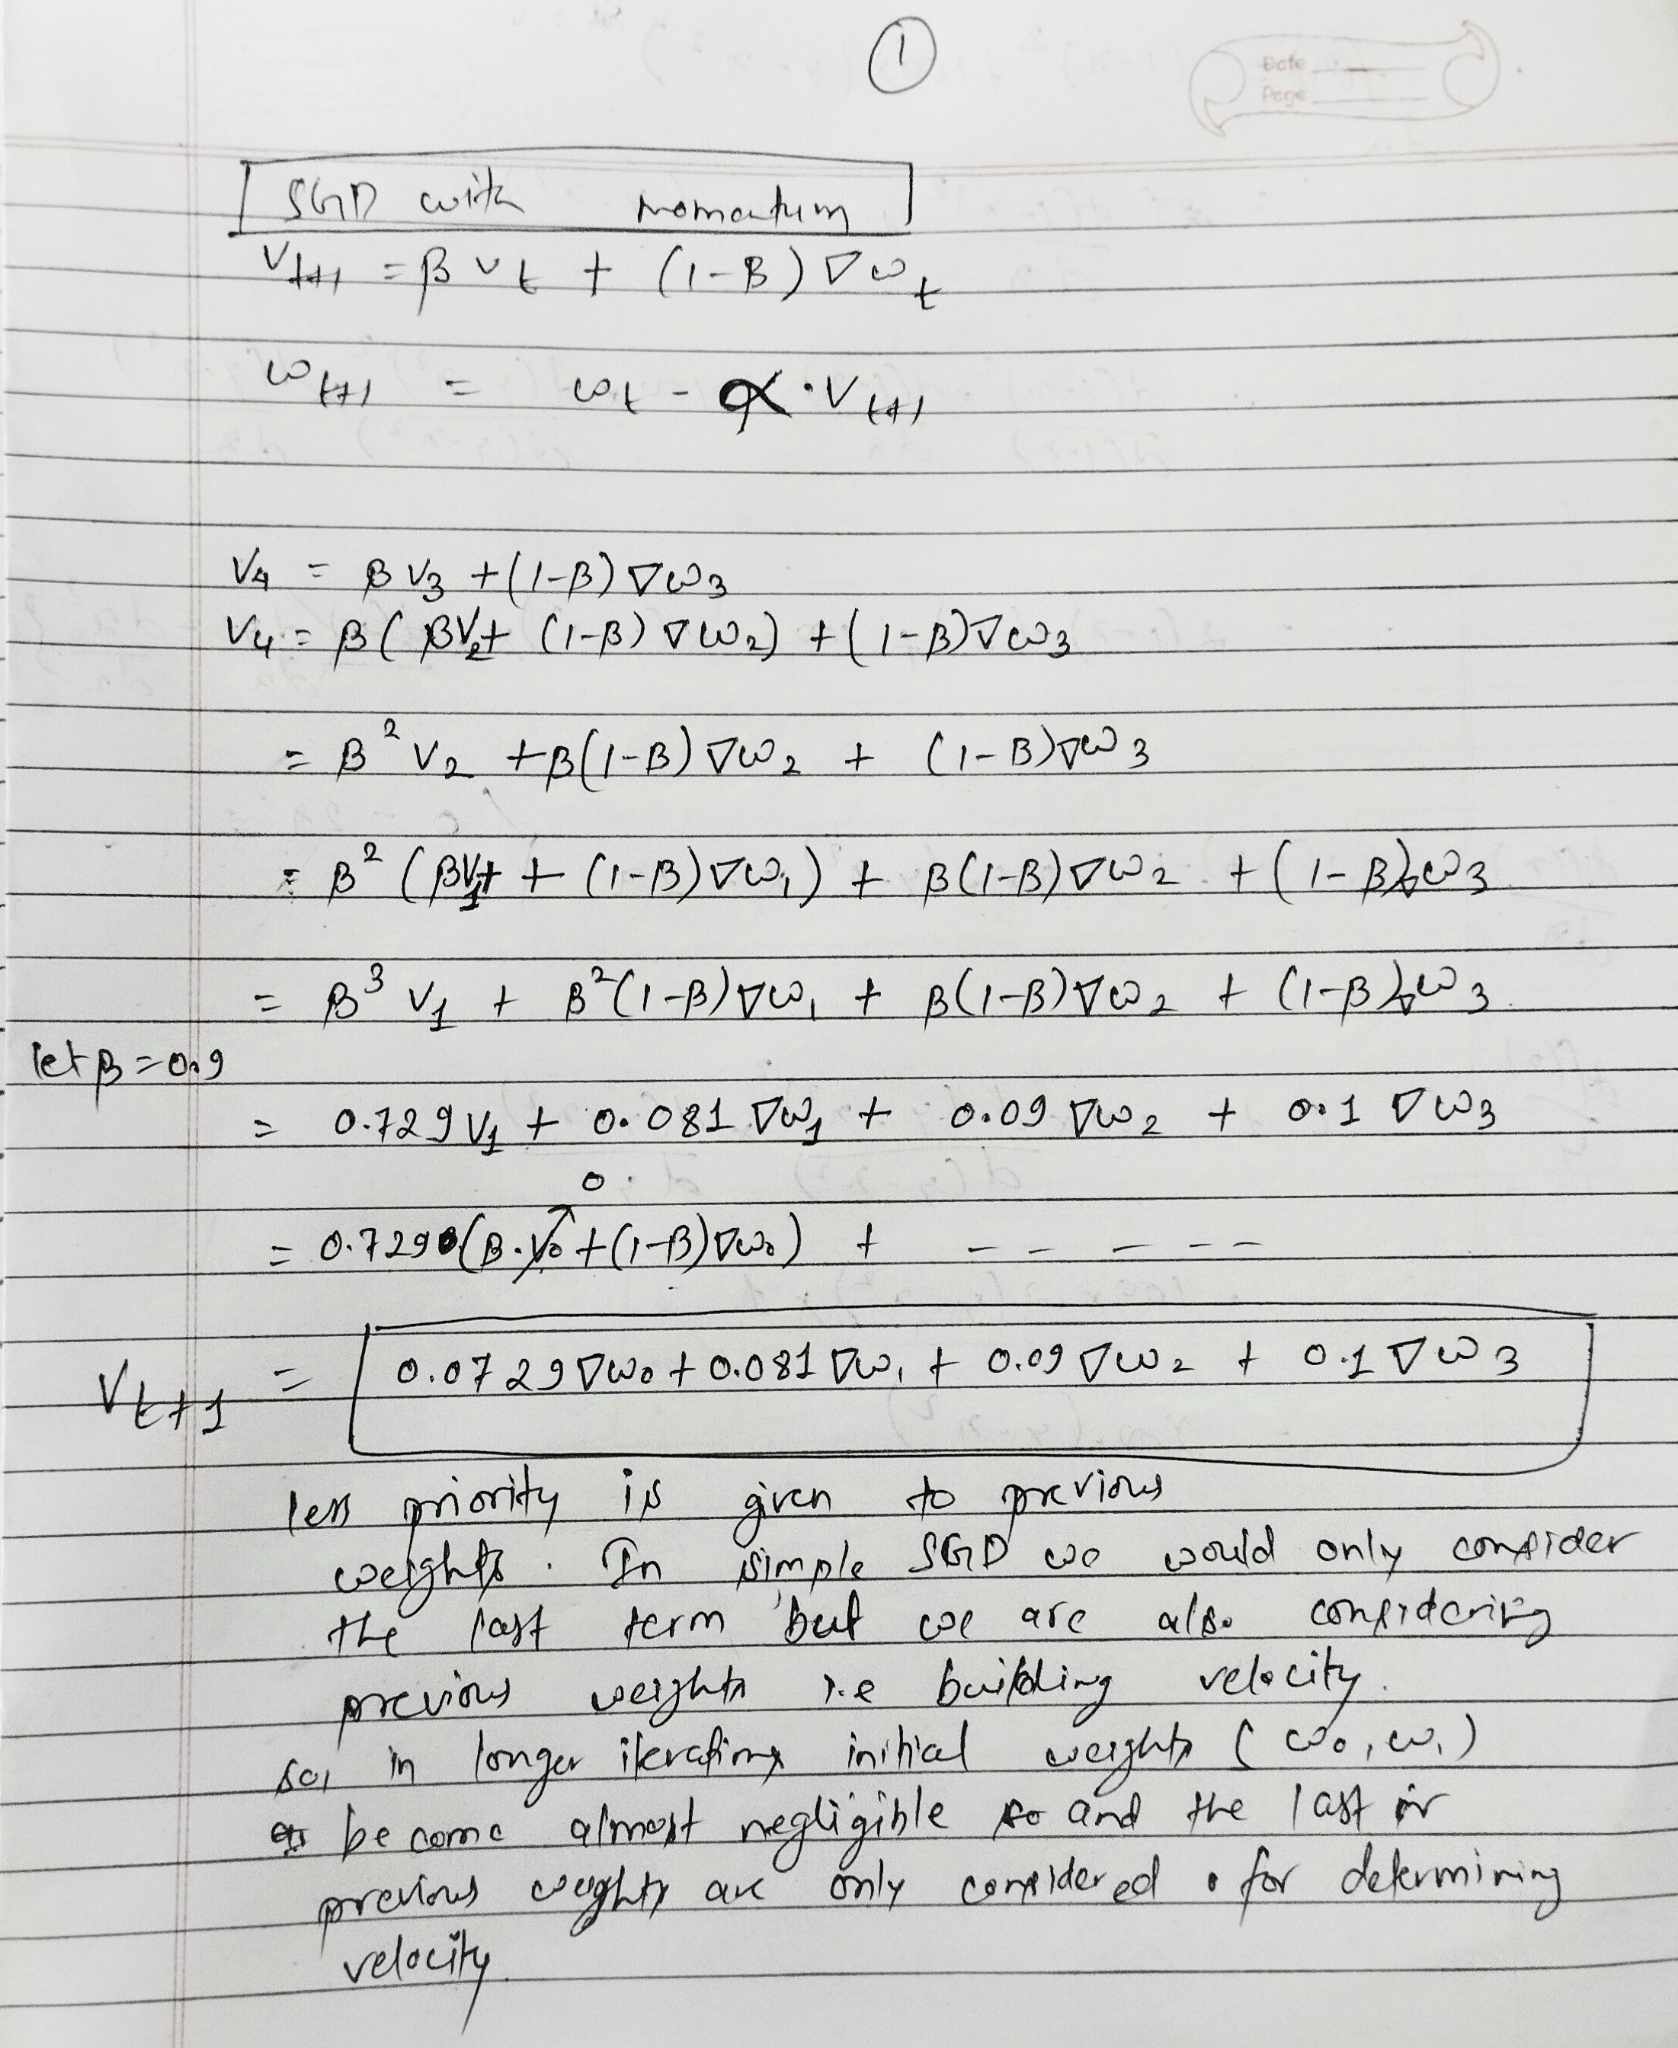 1
Date
Page
SGD with momentum
V_{t+1} = β v_t + (1-β) ∇ω_t
ω_{t+1} = ω_t - α · V_{t+1}
V_4 = β V_3 + (1-β) ∇ω_3
V_4 = β (βV_2 + (1-β) ∇ω_2) + (1-β)∇ω_3
= β² V_2 + β(1-β) ∇ω_2 + (1-β)∇ω_3
= β² (βV_1 + (1-β)∇ω_1) + β(1-β)∇ω_2 + (1-β)∇ω_3
= β³ V_1 + β²(1-β)∇ω_1 + β(1-β)∇ω_2 + (1-β)∇ω_3
let β = 0.9
= 0.729 V_1 + 0.081 ∇ω_1 + 0.09 ∇ω_2 + 0.1 ∇ω_3
0
= 0.729(β·V_0 + (1-β)∇ω_0) + - - - - -
V_{t+1} = 0.0729∇ω_0 + 0.081 ∇ω_1 + 0.09 ∇ω_2 + 0.1 ∇ω_3
less priority is given to previous
weights. In simple SGD we would only consider
the last term but we are also considering
previous weights i.e building velocity.
so, in longer iterations initial weights (ω_0, ω_1)
become almost negligible and the last or
previous weights are only considered for determining
velocity.